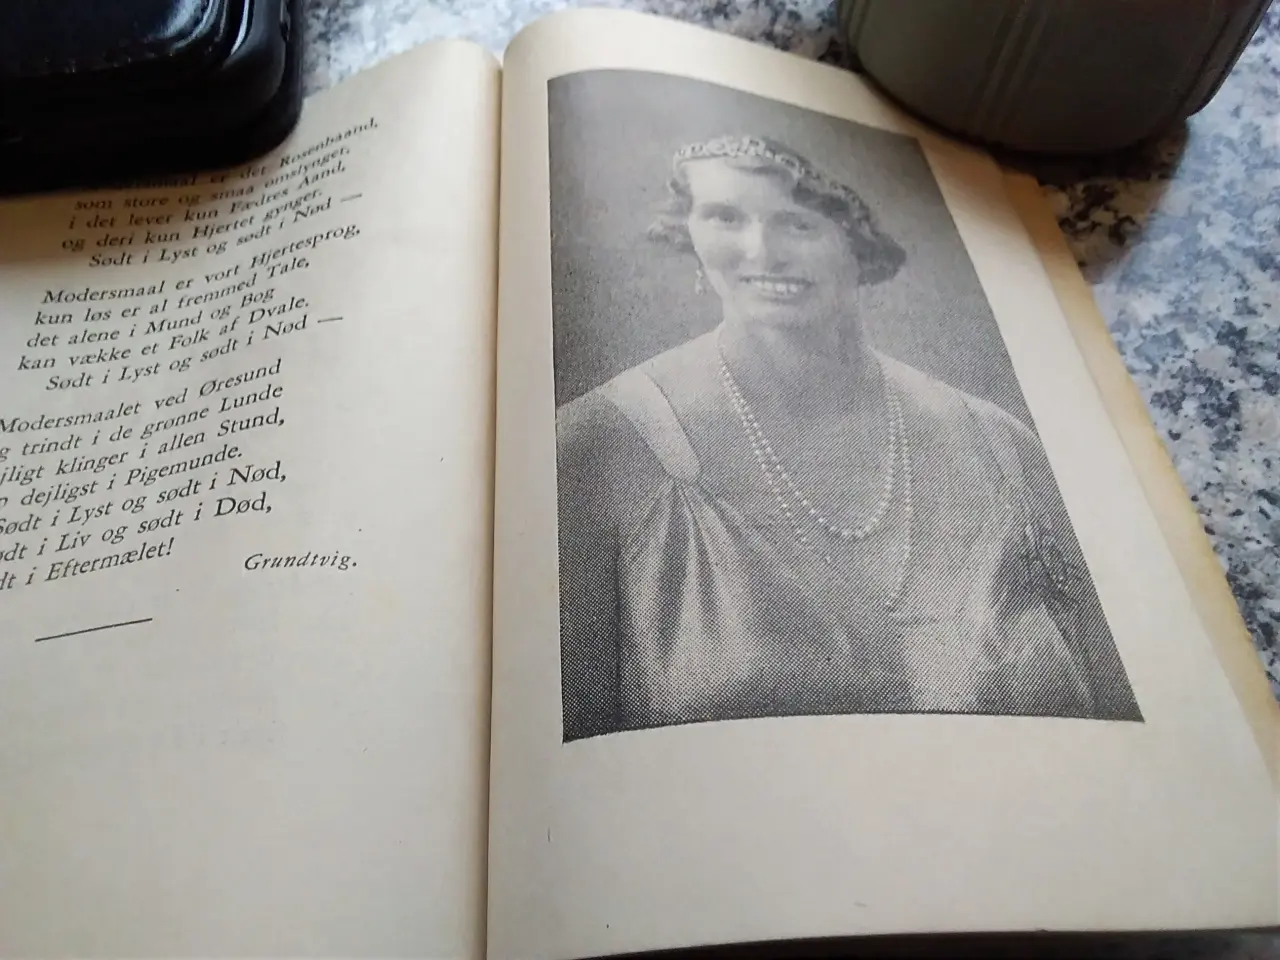 dersmaal er det Rosenbaand,
som store og smaa omslynger,
i det lever kun Fædres Aand,
og deri kun Hjertet gynger.
Sødt i Lyst og sødt i Nød —
Modersmaal er vort Hjertesprog,
kun løs er al fremmed Tale,
det alene i Mund og Bog
kan vække et Folk af Dvale.
Sødt i Lyst og sødt i Nød —
Modersmaalet ved Øresund
g trindt i de grønne Lunde
jligt klinger i allen Stund,
p dejligst i Pigemunde.
Sødt i Lyst og sødt i Nød,
ødt i Liv og sødt i Død,
dt i Eftermælet!
Grundtvig.